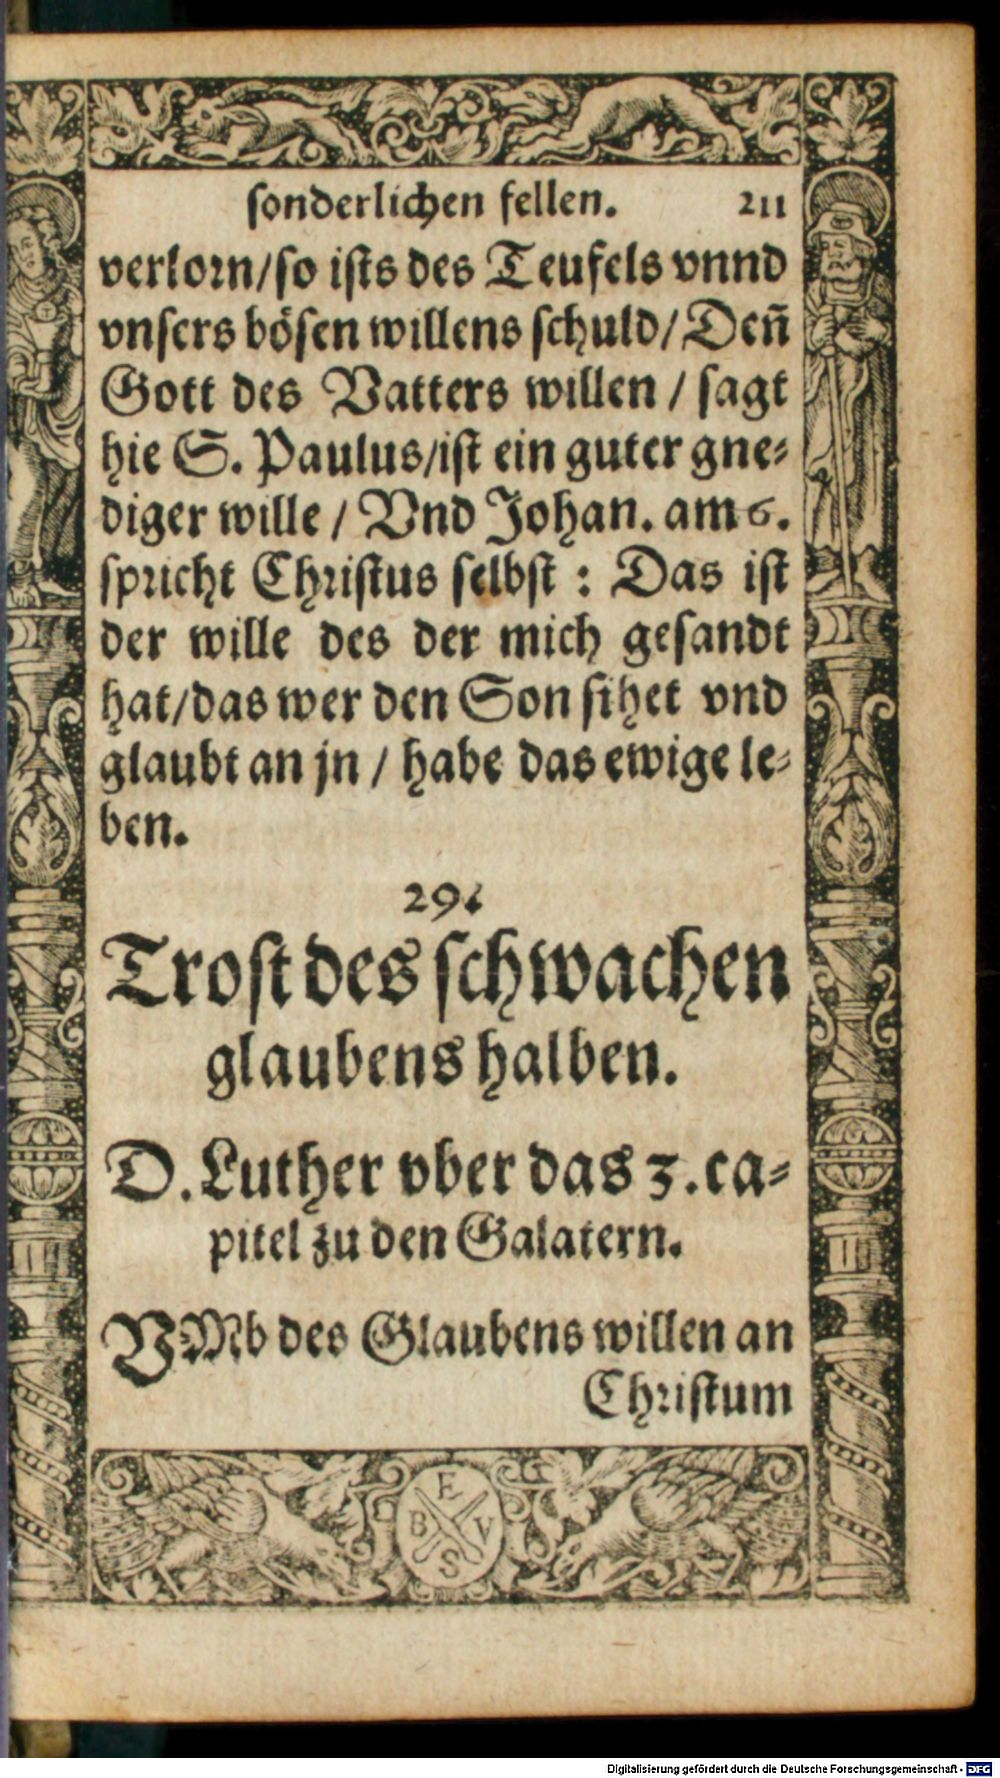 sonderlichen fellen. 211
verlorn/so ists des Teufels vnnd
vnsers bösen willens schuld/Deñ
Gott des Vatters willen / sagt
hie S. Paulus/ist ein guter gne-
diger wille / Vnd Johan. am 6.
spricht Christus selbst : Das ist
der wille des der mich gesandt
hat/das wer den Son sihet vnd
glaubt an jn / habe das ewige le-
ben.
296
Trost des schwachen
glaubens halben.
D. Luther vber das 3. ca-
pitel zu den Galatern.
VMb des Glaubens willen an
Christum
E
B V
S
Digitalisierung gefördert durch die Deutsche Forschungsgemeinschaft - DFG